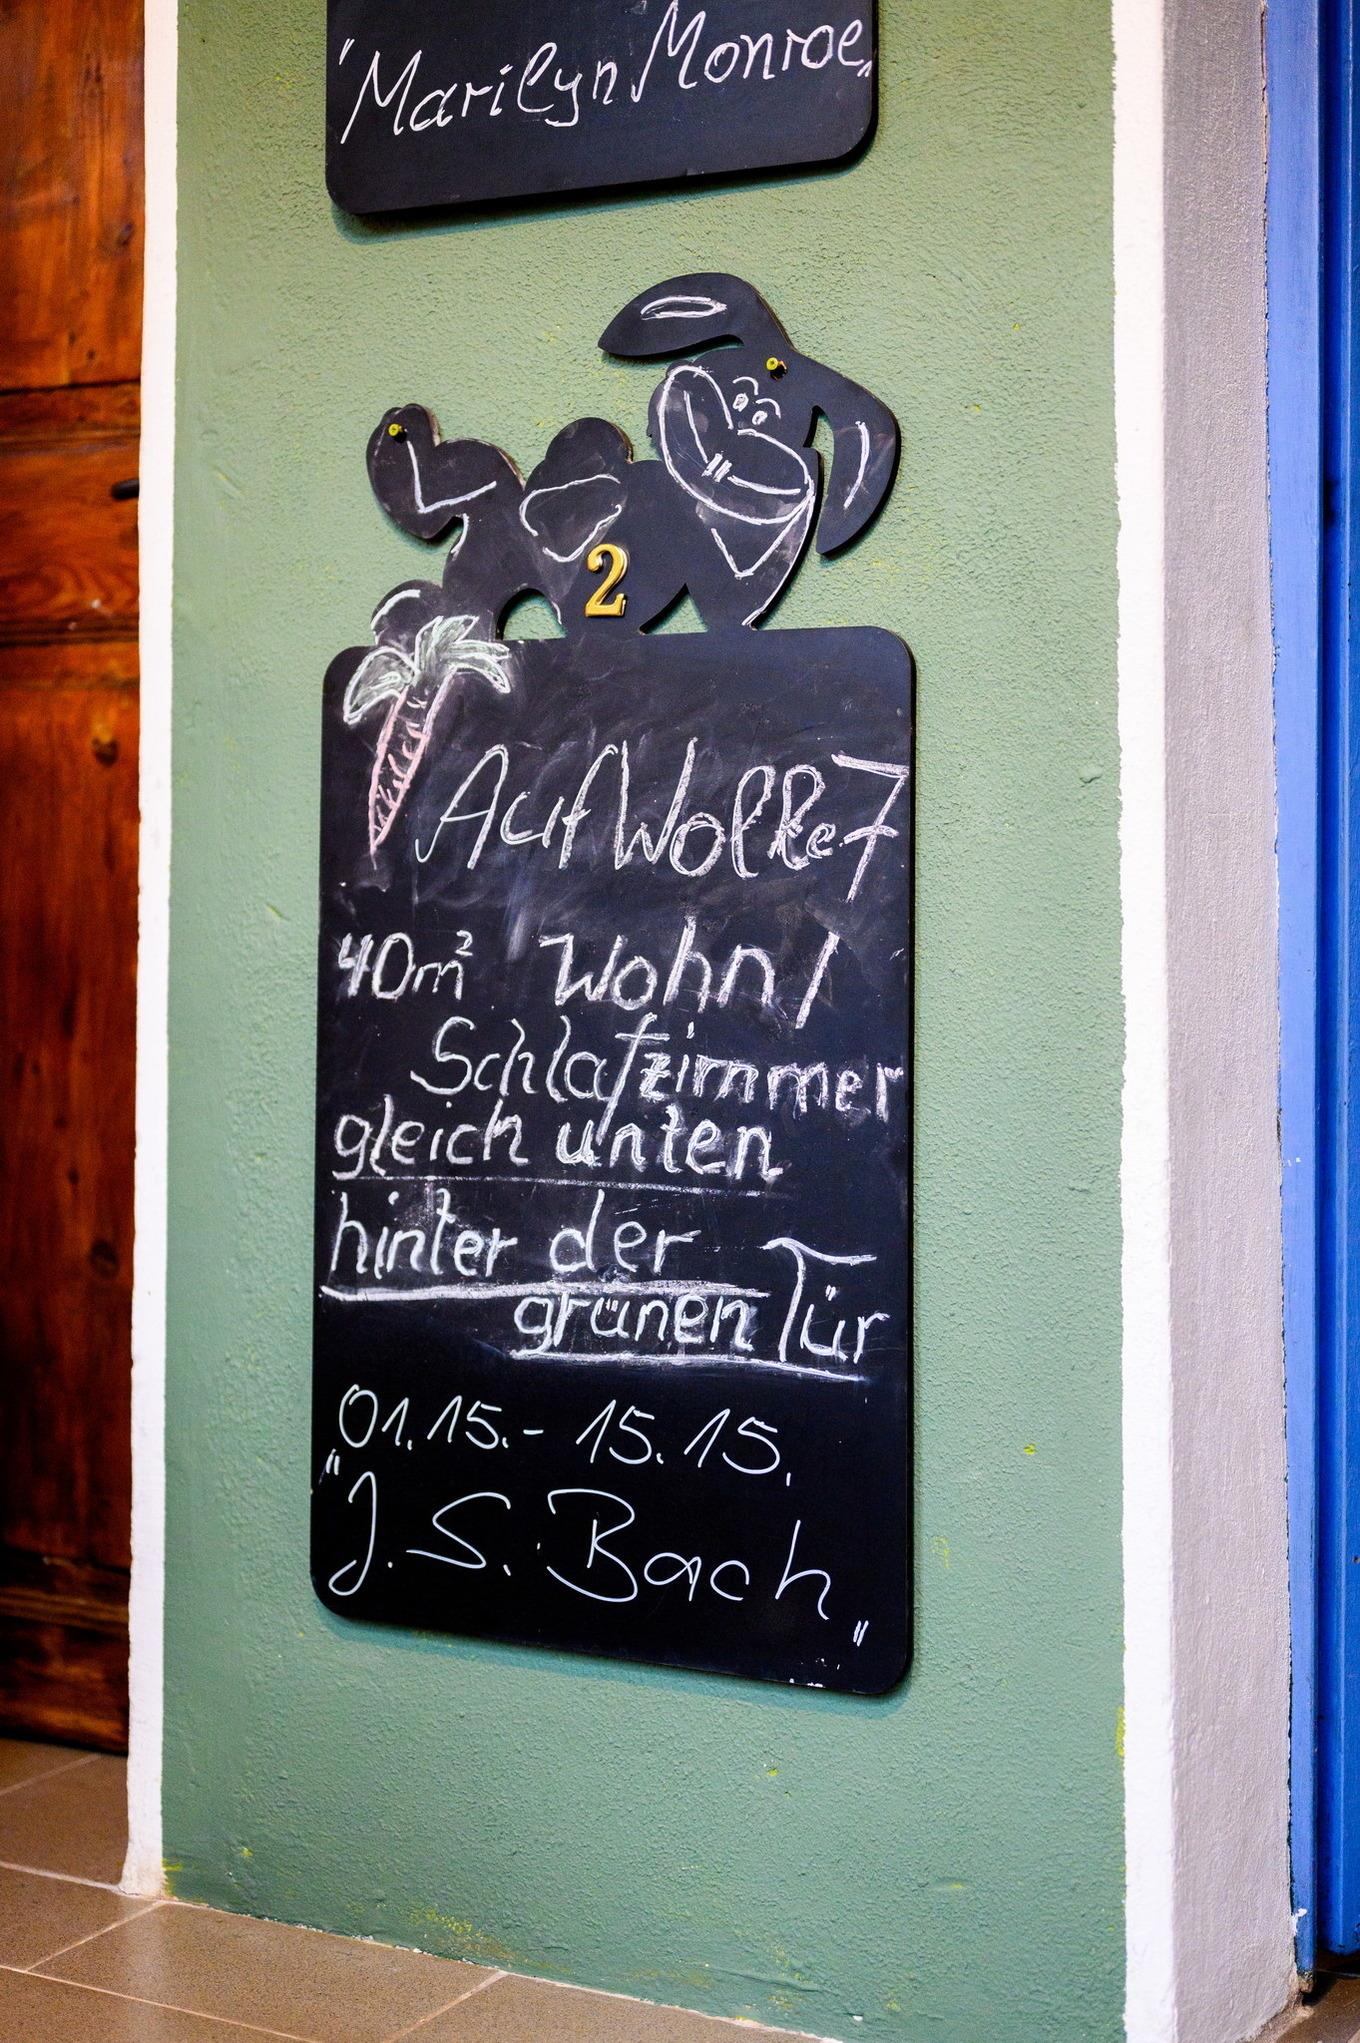 "Marilyn Monroe"
2
Auf Wolke 7
40m² Wohn/
Schlafzimmer
gleich unten
hinter der
grünen Tür
01.15.- 15.15.
"J. S. Bach"